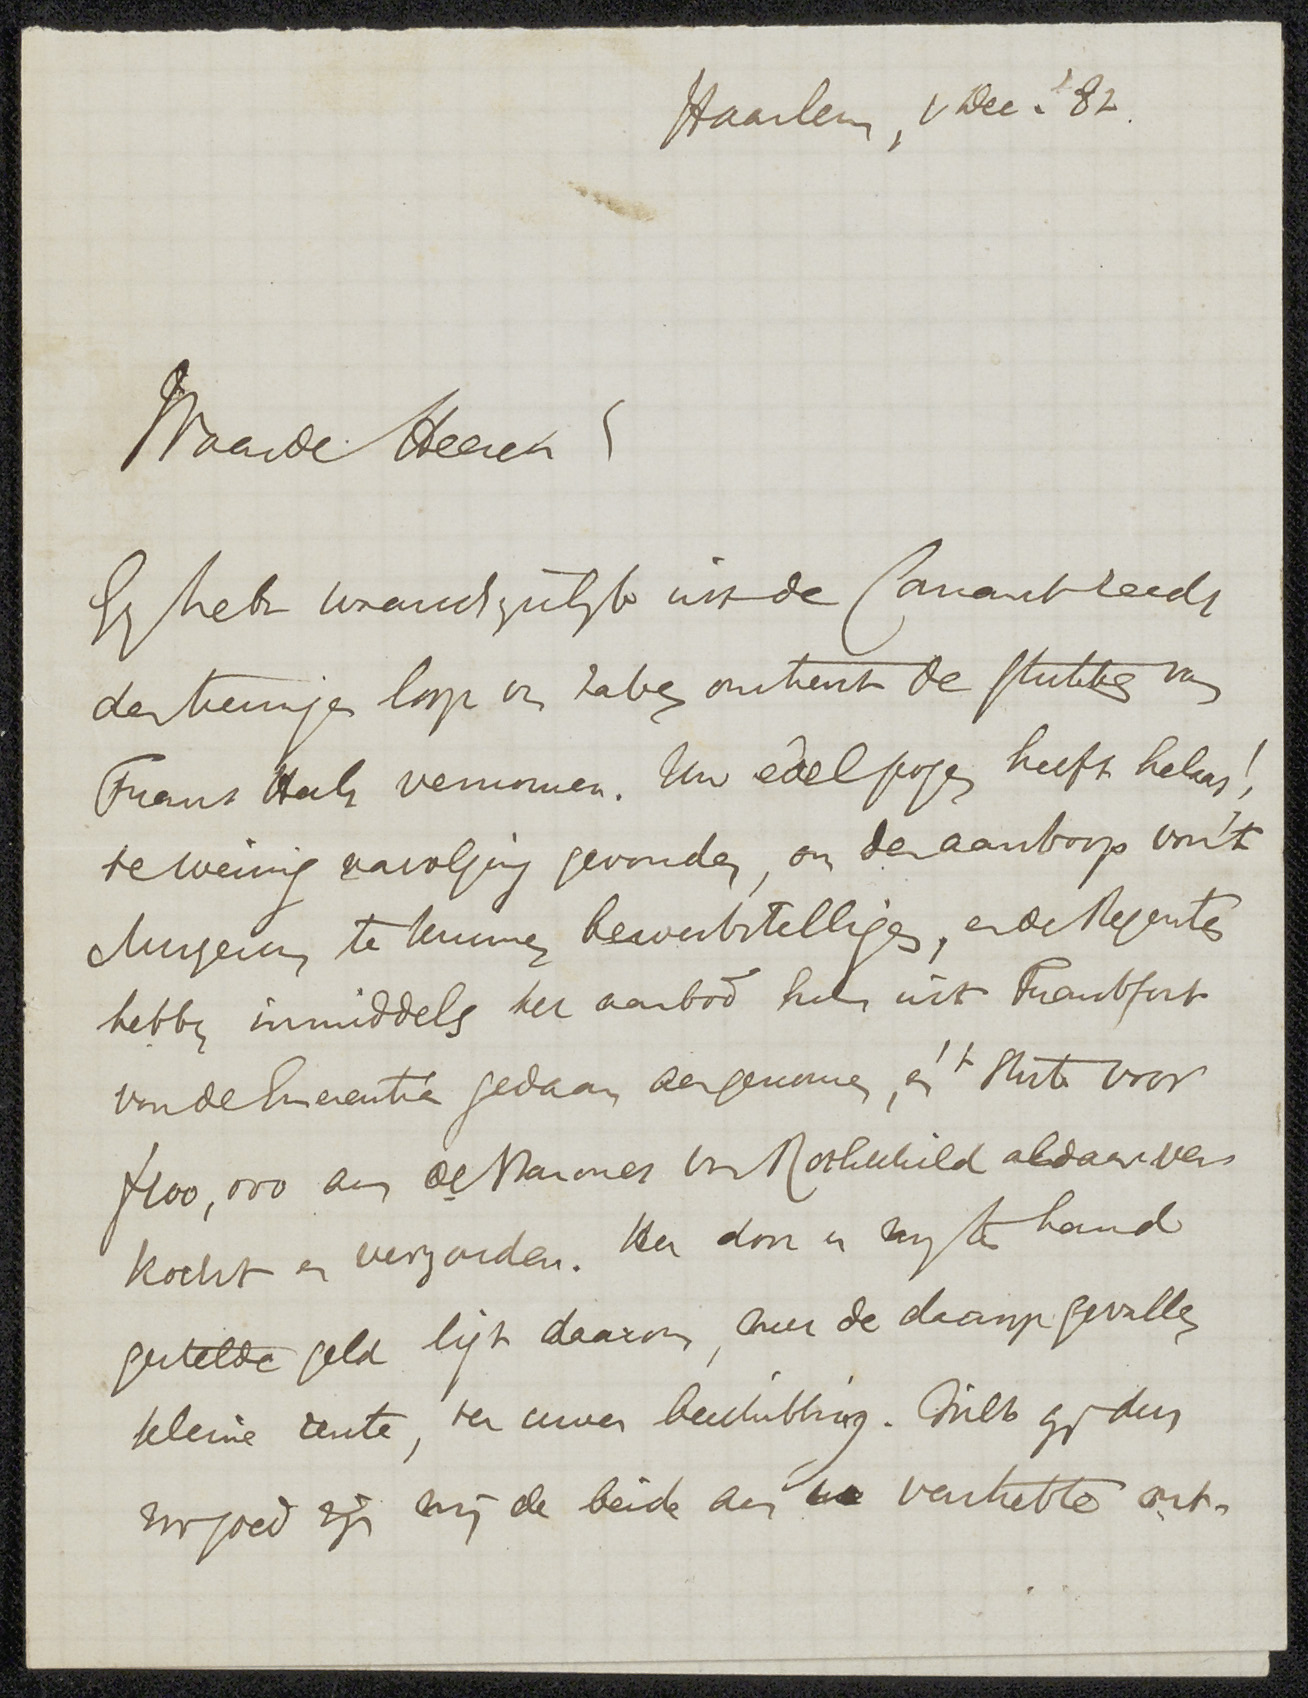 Haarlem, 1 Dec. '82.
Waarde Heeren!
Gij hebt waarschijnlijk uit de Courant reeds
den treurigen loop der zaken omtrent de stukken van
Frans Hals vernomen. Uw edel pogen heeft helaas!
te weinig navolging gevonden, om den aankoop voor 't
Museum te kunnen bewerkstelligen, en de Regenten
hebben inmiddels het aanbod hun uit Frankfort
van de Emerentia gedaan aangenomen, en 't stuk voor
f100,000 aan de Barones von Rothschild aldaar ver-
kocht en verzonden. Het door u mij ter hand
gestelde geld ligt daarom, met de daarop gevallen
kleine rente, ter uwer beschikking. Wilt gij dus
zoo goed zijn mij de beide aan u verstrekte ont-